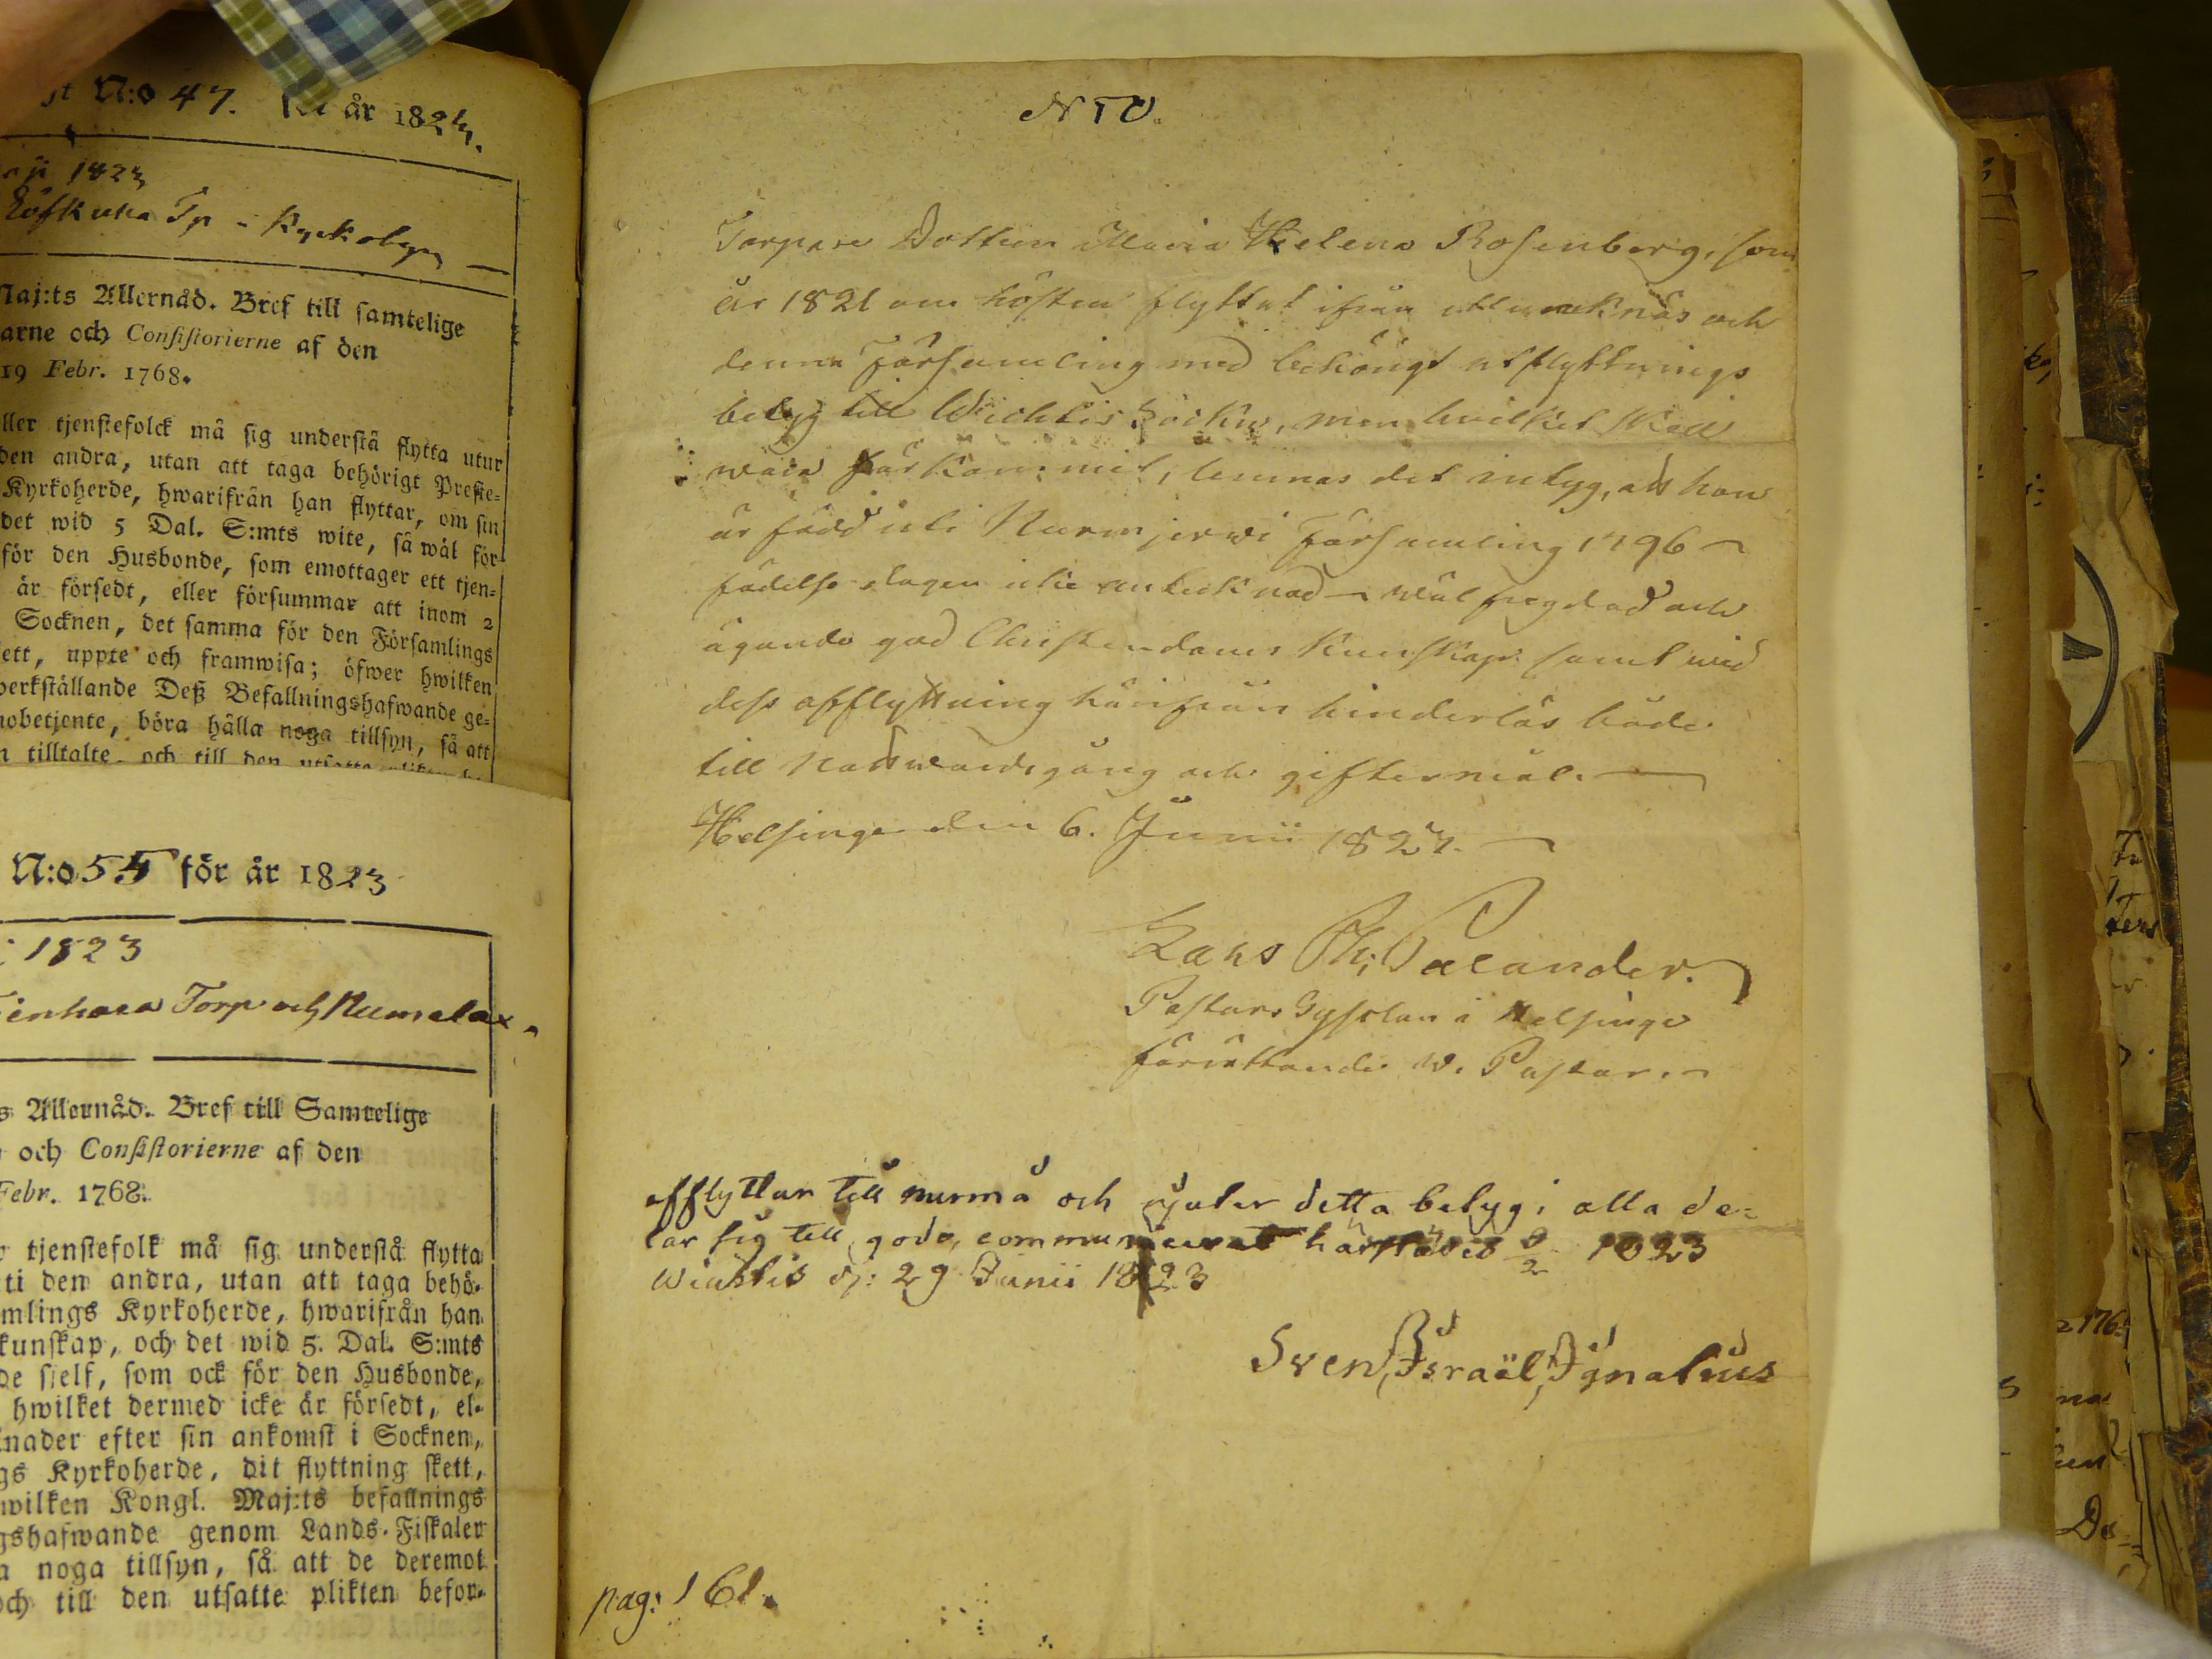 N:o 47. för år 1823.
1823
Tp i Kyrkobyn
Maj:ts Allernåd. Bref till samtelige
arne och Consistorierne af den
19 Febr. 1768.
ller tjenstefolck må sig understå flytta utur
den andra, utan att taga behörigt Preste-
Kyrkoherde, hwarifrån han flyttar, om sin
det wid 5 Dal. S:mts wite, så wäl för
för den Husbonde, som emottager ett tjen-
är försedt, eller försummar att inom 2
Socknen, det samma för den Församlings
ett, uppte och framwisa; öfwer hwilken
werkställande Deß Befallningshafwande ge-
nobetjente, böra hålla noga tillsyn, så att
n tilltalte, och till den utsatte
N:o 54 för år 1823
1823
Torp och Nummela
s Allernåd. Bref till Samtelige
och Consistorierne af den
Febr. 1768.
tjenstefolk må sig understå flytta
ti den andra, utan att taga behö-
mlings Kyrkoherde, hwarifrån han
kunskap, och det wid 5. Dal. S:mts
de sjelf, som ock för den Husbonde,
hwilket dermed icke är försedt, el-
nader efter sin ankomst i Socknen,
gs Kyrkoherde, dit flyttning skett,
wilken Kongl. Maj:ts befallnings
gshafwande genom Lands-Fiskaler
a noga tillsyn, så att de deremot
och till den utsatte plikten befor-
N 50.
Torpare Dottren Maria Helena Rosenberg, som
år 1821 om hösten flyttat ifrån och
denna Församling med behörigt utflyttnings
betyg till Wichtis Sockn, men hvilket skall
wara förkommit, lemnas det intyg, att hon
är född uti Nurmjerwi Församling 1796
födelse dagen icke antecknad wäl frejdad och
ägande god Christendoms Kunskap samt wid
dess afflyttning härifrån hinderlös både
till Nattwardsgång och giftermål.
Helsinge den 6. Junii 1823.
Lars Palander.
Pastors Adjunct i Helsinge
förrättande v. Pastor.
afflyttar till nurmå och njuter detta betyg i alla de-
lar sig till godo, communicerat härstädes 9/2 1823
Wichtis d: 29 Junii 1823
Sven Israël Ignatius
pag: 161.